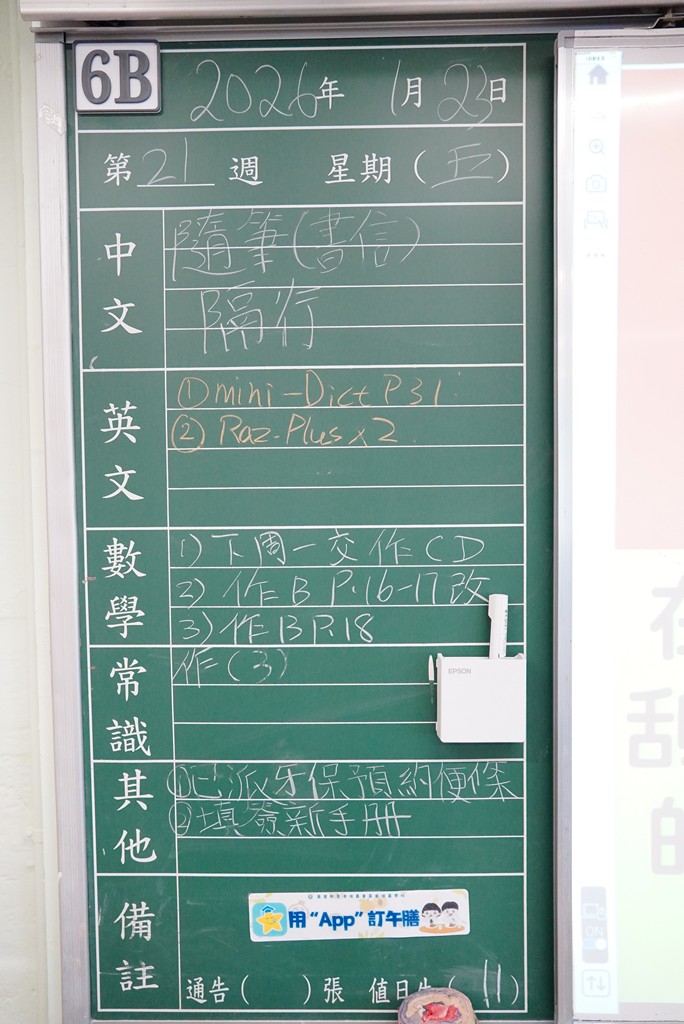 6B
2026年 1月23日
第 21 週 星期(五)
中文
隨筆(書信)
隔行
英文
①mini-Dict P31
② Raz-Plus x2
數學
1) 下周一交作CD
2) 作B P.16-17改
3) 作B P.18
常識
作(3)
其他
①已派牙保預約便條
②填簽新手冊
備註
用“App”訂午膳
通告( )張 值日生( 11 )
EPSON
ON
在
的